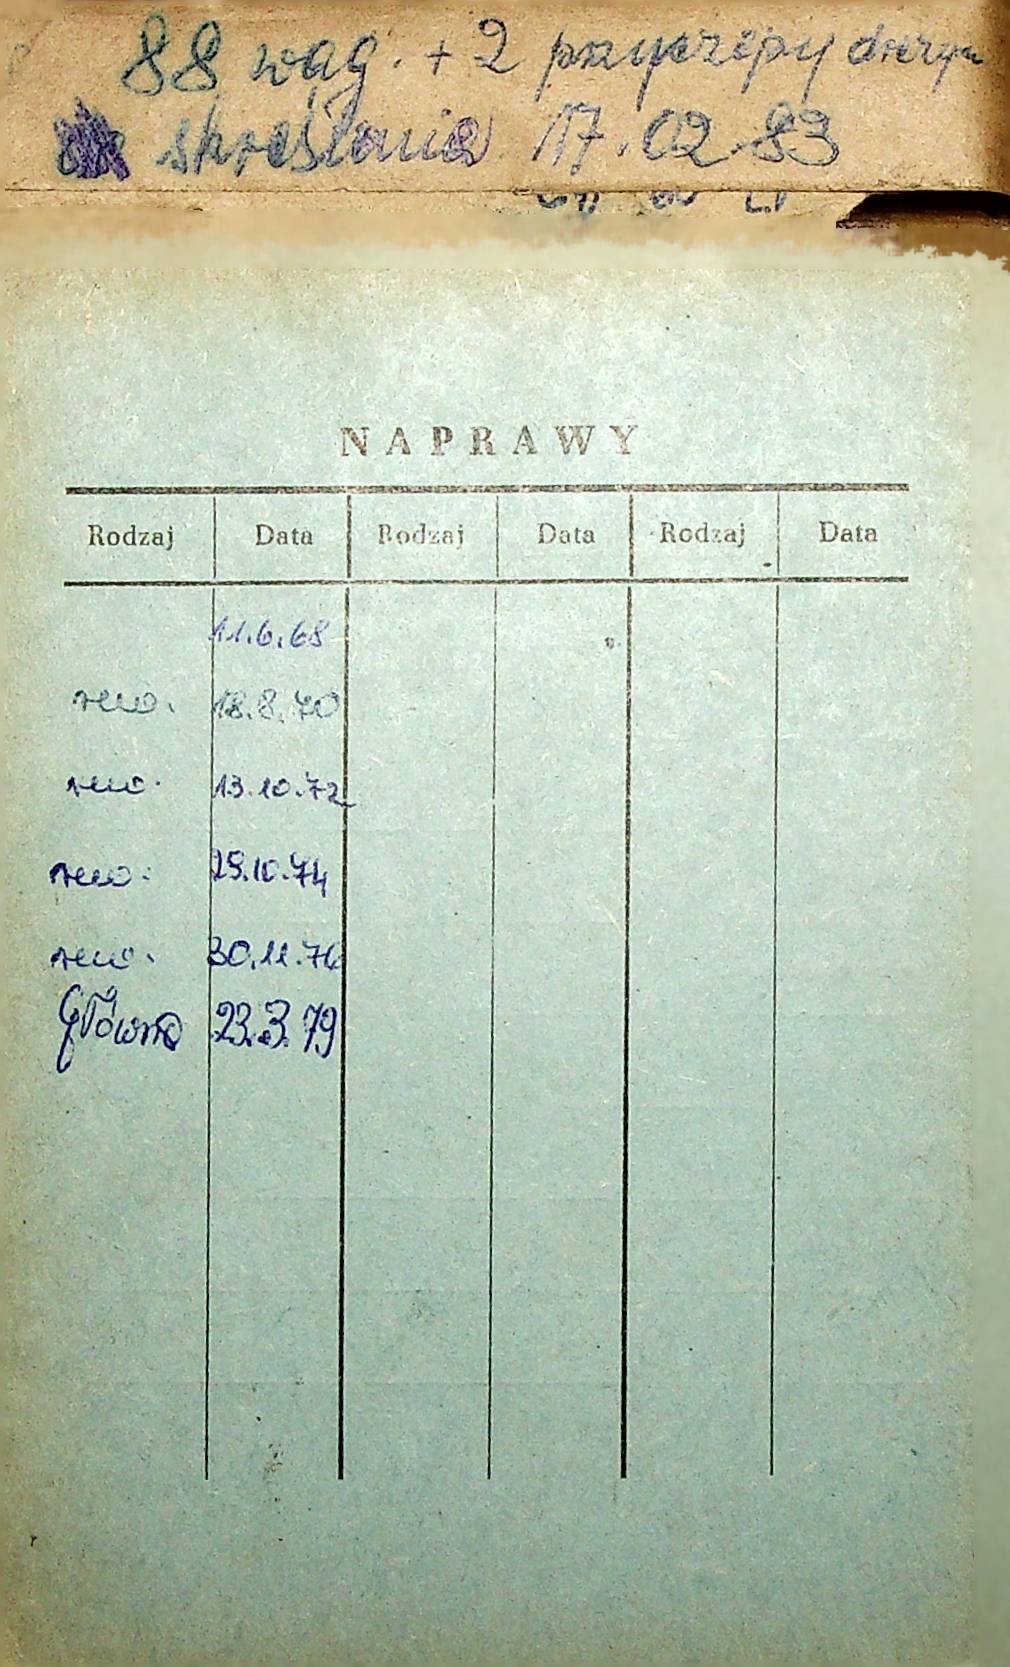 88 wag. + 2 przyczepy drezyn
skreślania 17.02.83
NAPRAWY
Rodzaj Data Rodzaj Data Rodzaj Data
11.6.68
rew. 18.8.70
rew. 13.10.72
rew. 25.10.74
rew. 30.11.76
Główna 23.3.79